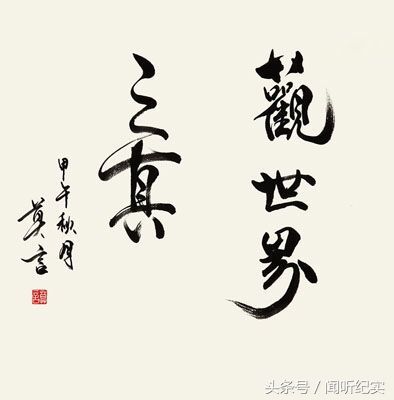 觀世界
之真
甲午秋月
莫言
头条号 / 闻听纪实